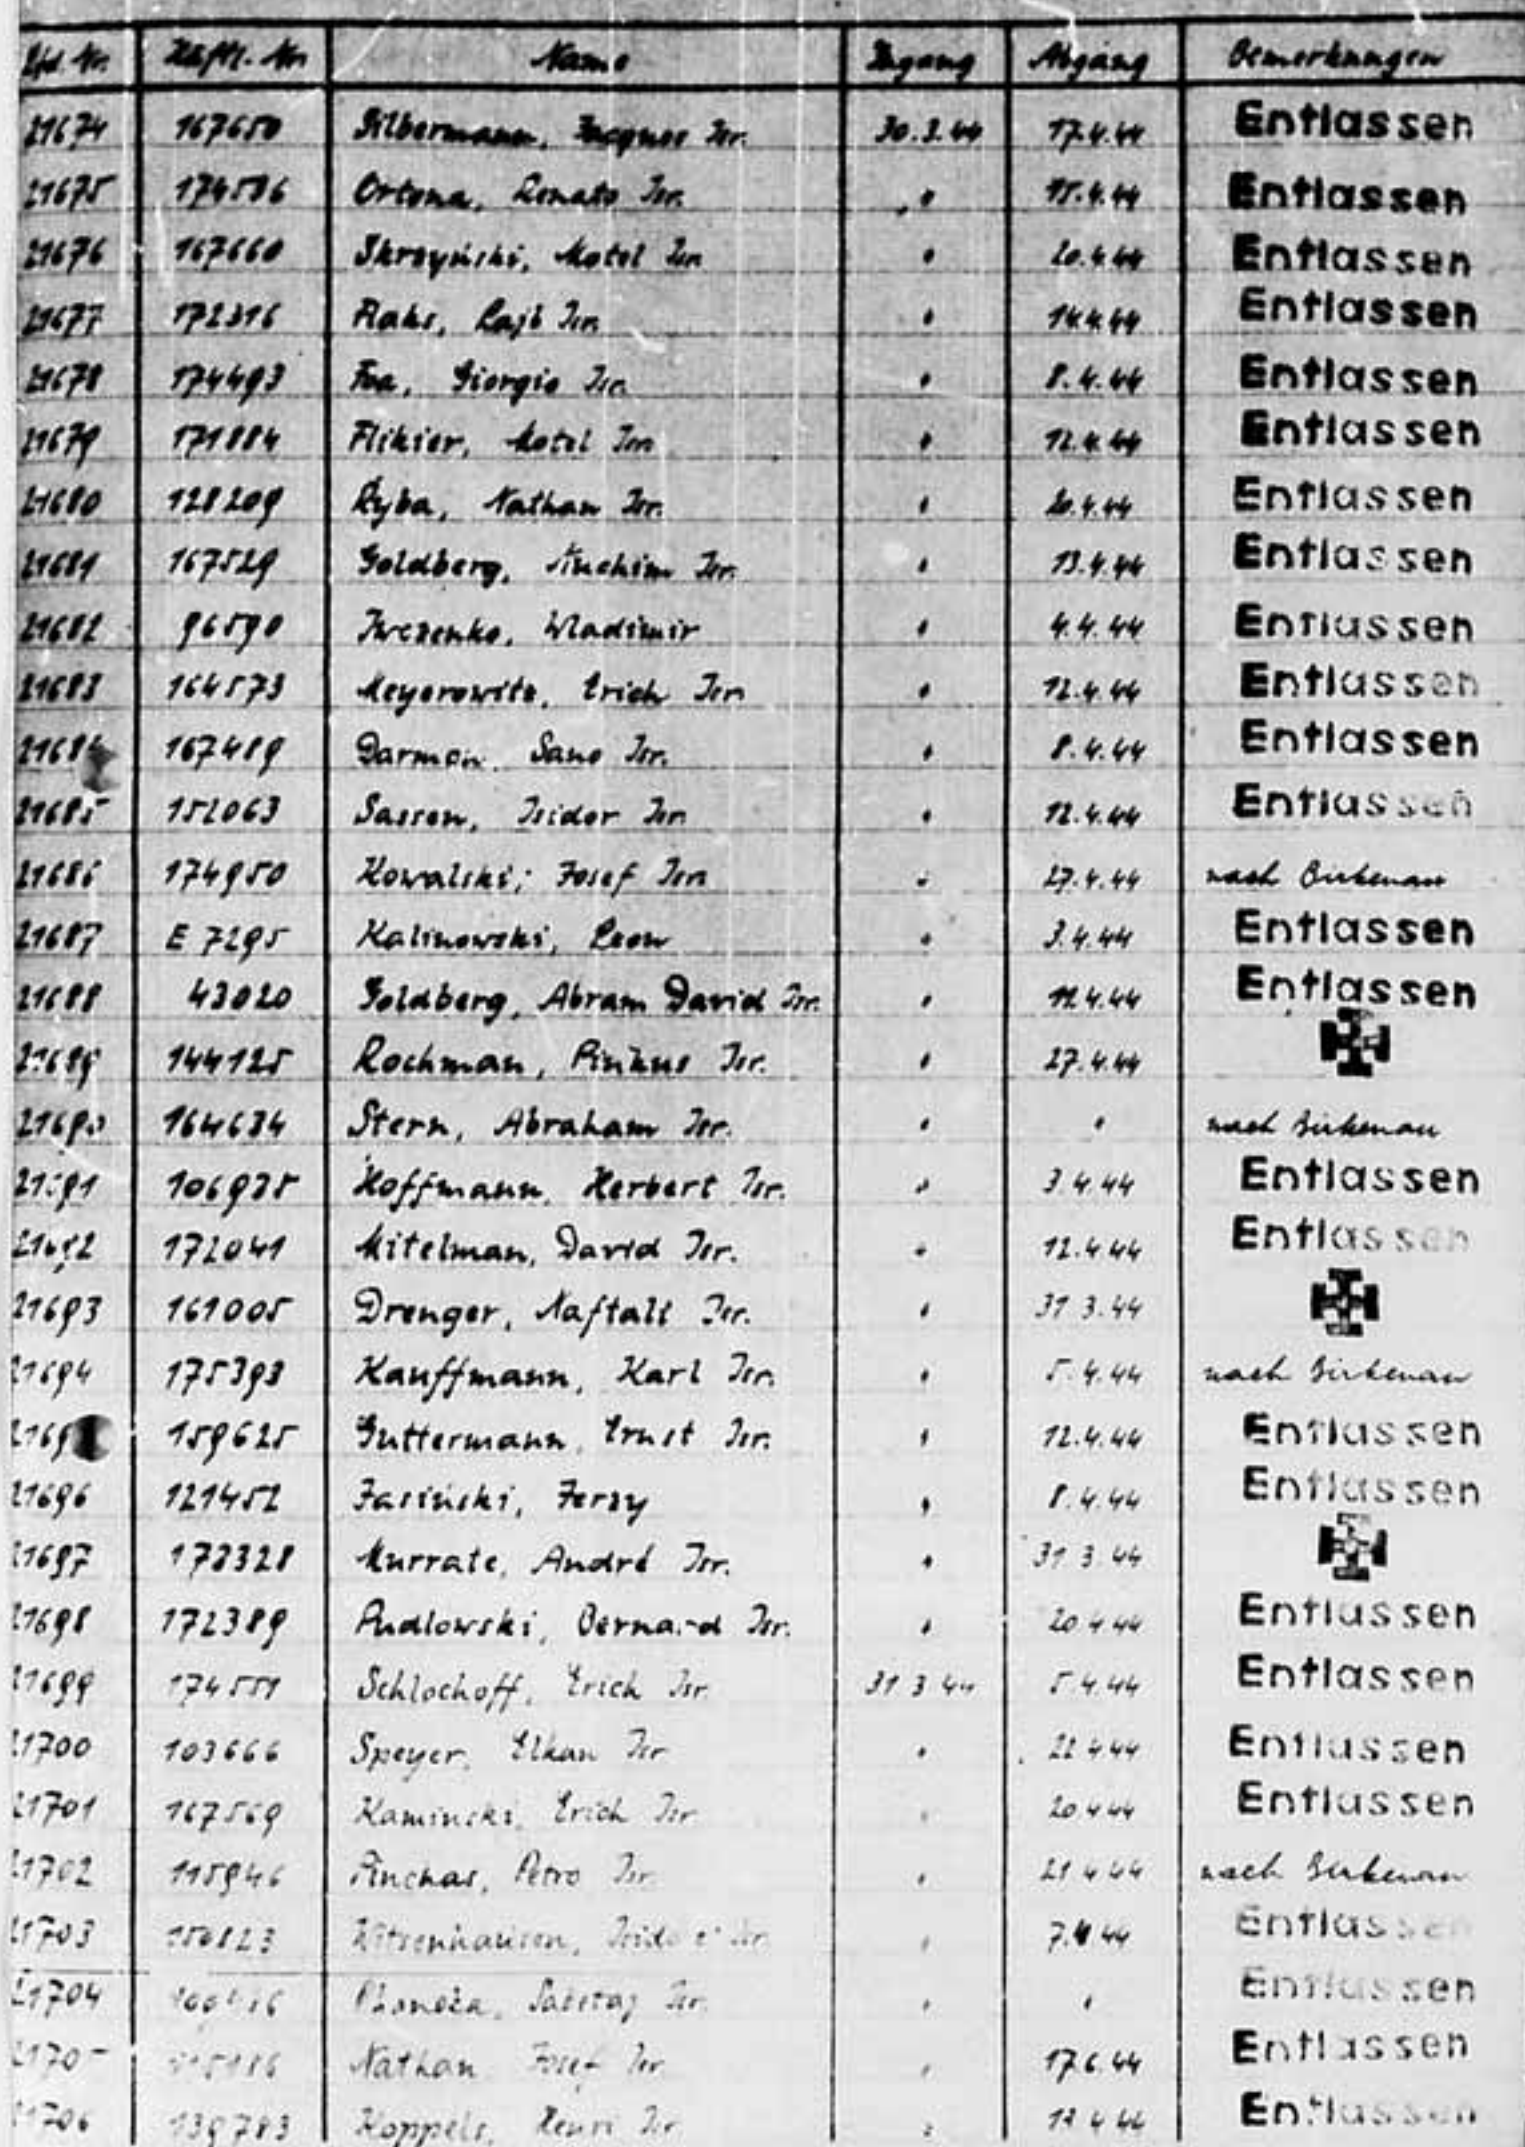 Lfd. Nr. Häftl.-Nr. Name Zugang Abgang Bemerkungen
21674 167650 Silbermann, Isr. 30.3.44 17.4.44 Entlassen
21675 174536 Ortona, Renato Isr. " 15.4.44 Entlassen
21676 167660 Skrzyński, Motel Isr. " 20.4.44 Entlassen
21677 172316 Flaks, Lajb Isr. " 14.4.44 Entlassen
21678 174493 Foa, Giorgio Isr. " 8.4.44 Entlassen
21679 171884 Flikier, Motel Isr. " 12.4.44 Entlassen
21680 128209 Ryba, Nathan Isr. " 20.4.44 Entlassen
21681 167529 Goldberg, Nuchim Isr. " 13.4.44 Entlassen
21682 96590 Iwczenko, Wladimir " 4.4.44 Entlassen
21683 164573 Meyerowitz, Erich Isr. " 12.4.44 Entlassen
21684 167489 Darmon, Sano Isr. " 8.4.44 Entlassen
21685 152063 Sasson, Isidor Isr. " 12.4.44 Entlassen
21686 174950 Kowalski, Josef Isr. " 27.4.44 nach Birkenau
21687 E 7295 Kalinowski, Leon " 3.4.44 Entlassen
21688 43020 Goldberg, Abram David Isr. " 12.4.44 Entlassen
21689 144125 Rochman, Pinkus Isr. " 27.4.44
21690 164634 Stern, Abraham Isr. " " nach Birkenau
21691 106935 Hoffmann, Herbert Isr. " 3.4.44 Entlassen
21692 172041 Mitelman, David Isr. " 12.4.44 Entlassen
21693 161005 Drenger, Naftali Isr. " 31.3.44
21694 175393 Kauffmann, Karl Isr. " 5.4.44 nach Birkenau
2169 159625 Guttermann, Ernst Isr. " 12.4.44 Entlassen
21696 121452 Jasiński, Jerzy " 8.4.44 Entlassen
21697 173328 Murrate, André Isr. " 31.3.44
21698 172389 Pudlowski, Bernard Isr. " 20.4.44 Entlassen
21699 174551 Schlochoff, Erich Isr. 31.3.44 5.4.44 Entlassen
21700 103666 Speyer, Elkan Isr. " 22.4.44 Entlassen
21701 167569 Kaminski, Erich Isr. " 20.4.44 Entlassen
21702 115946 Pinchas, Petro Isr. " 21.4.44 nach Birkenau
21703 150823 Isr. " 7.4.44 Entlassen
21704 Isr. " " Entlassen
2170 Nathan, Josef Isr. " 17.6.44 Entlassen
21706 139783 Koppels, Henri Isr. " Entlassen